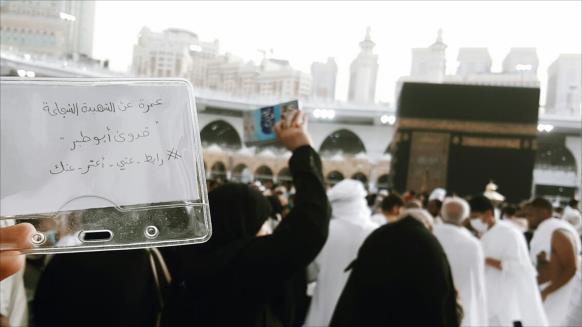 عمرة عن الشهيدة الشجاعة
" فدوى أبوطير "
# رابط _ عني _ أعتمر _ عنك